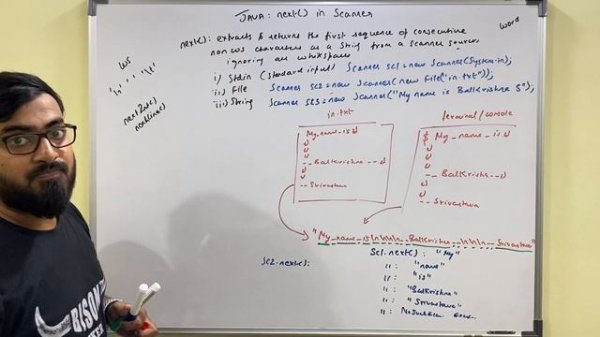 JAVA: next() in Scanner
word
next(): extracts & returns the first sequence of consecutive
non ws characters as a String from a scanner source,
ignoring all whitespace
ws
' ', '\t'
nextInt()
nextLine()
i) Stdin (standard input) Scanner sc1 = new Scanner(System.in);
ii) File Scanner sc2 = new Scanner(new File("in.txt"));
iii) String Scanner sc3 = new Scanner("My name is Balkrishna S");
in.txt
My_name_is↵
↵
↵
↵
--Balkrishna--↵
↵
--Srivastava
terminal/console
$ My_name_is↵
↵
↵
↵
--Balkrishna--↵
↵
↵
-- Srivastava
"My_name_is\n\n\n\n--Balkrishna--\n\n\n--Srivastava"
Sc2.next():
Sc1.next(): "My"
": "name"
": "is"
": "Balkrishna"
": "Srivastava"
": NoSuchElem
BISON